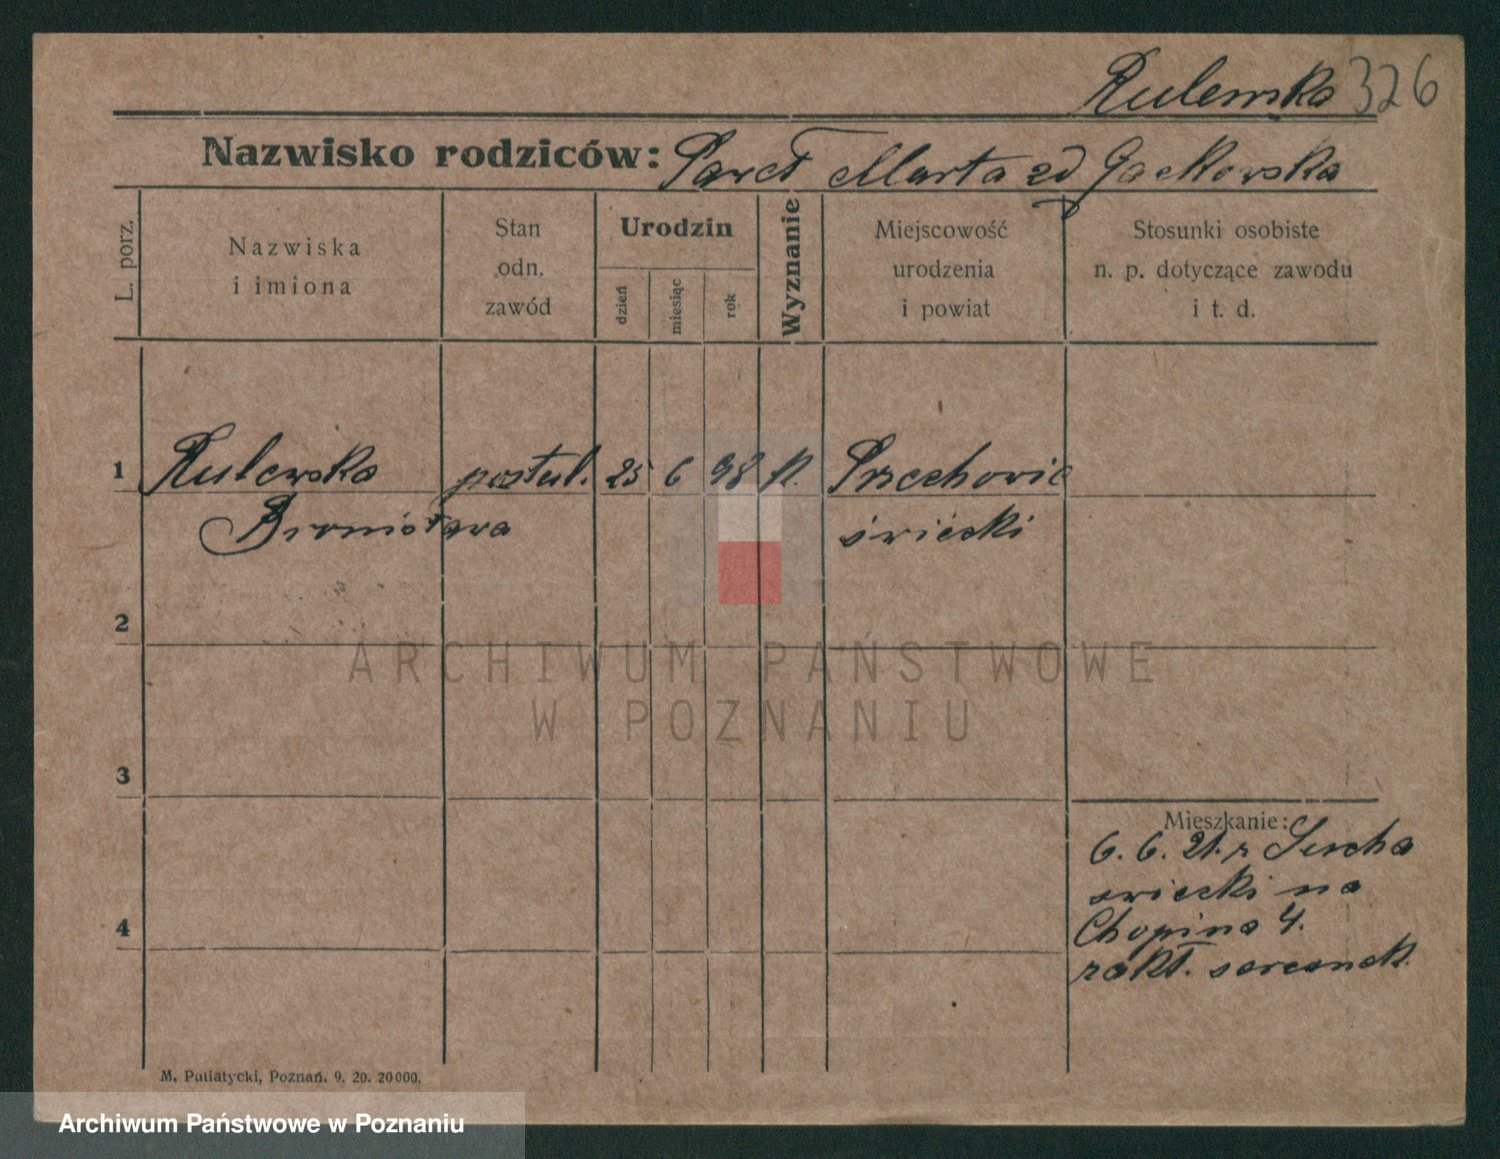 Rulewska 326
Nazwisko rodziców: Paweł Marta zd Gackowska
L. porz.
Nazwiska i imiona
Stan odn. zawód
Urodzin
dzień
miesiąc
rok
Wyznanie
Miejscowość urodzenia i powiat
Stosunki osobiste n. p. dotyczące zawodu i t. d.
1 Rulewska postul. 25 6 98 k. Przechowie
Bronisława świecki
2
3
Mieszkanie:
6. 6. 21. z
świecki na
4 Chopina 4.
zakł. sercanek.
M. Putiatycki, Poznań. 9. 20. 20000.
ARCHIWUM PAŃSTWOWE
W POZNANIU
Archiwum Państwowe w Poznaniu